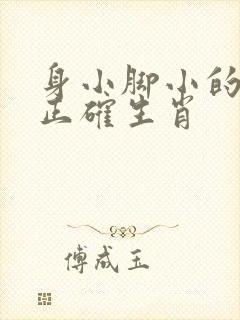 身小脚小的
正确生肖
傅成玉